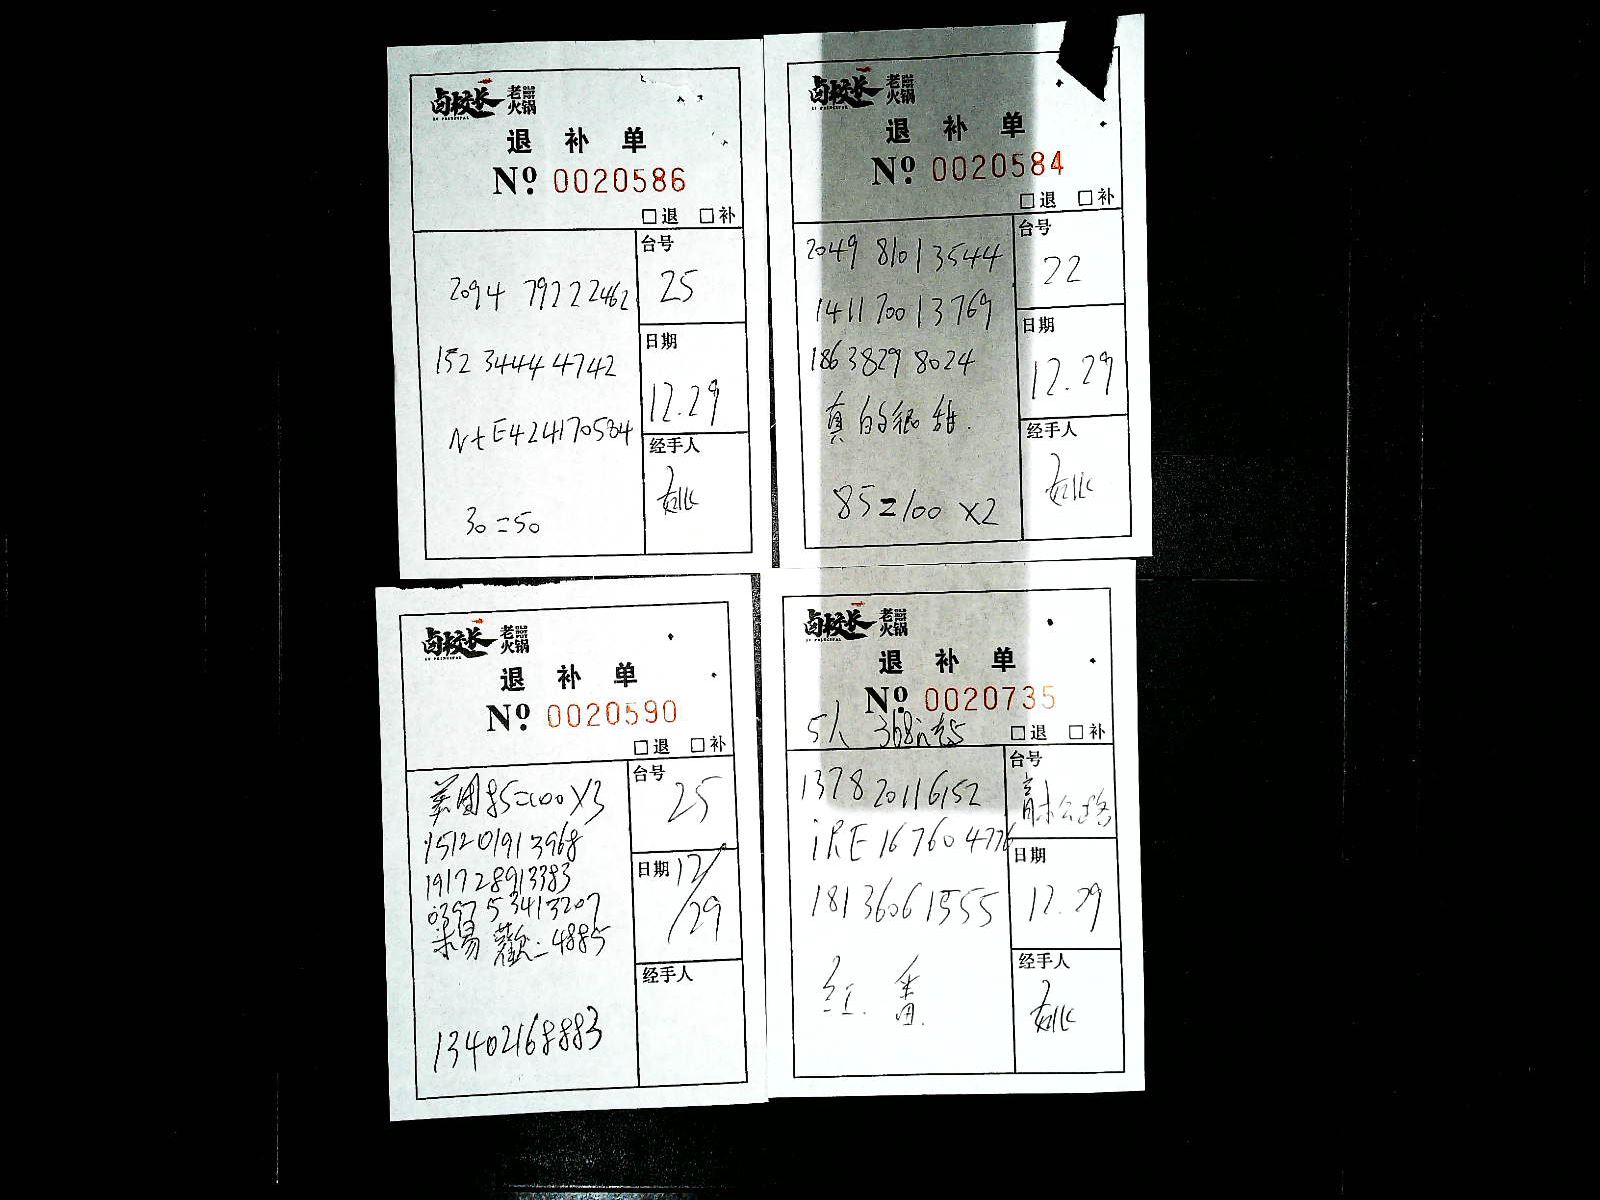 卤校长 老火锅
退补单
No. 0020586
□退 □补
2094 79222462
152 3444 4742
NtE4241170584
30=50
台号
25
日期
12.29
经手人
卤校长 老火锅
退补单
No. 0020584
□退 □补
2049 81013544
1411 70013769
186 3829 8024
真的很甜.
85=100 X2
台号
22
日期
12.29
经手人
卤校长 老火锅
退补单
No. 0020590
□退 □补
美团85=100X3
151201913968
191728913383
0397 53413207
4885
13402168883
台号
25
日期
12/29
经手人
卤校长 老火锅
退补单
No. 0020735
5人 368
□退 □补
1378 20116152
iRE 16 7604776
181 3606 1555
红
台号
日期
12.29
经手人